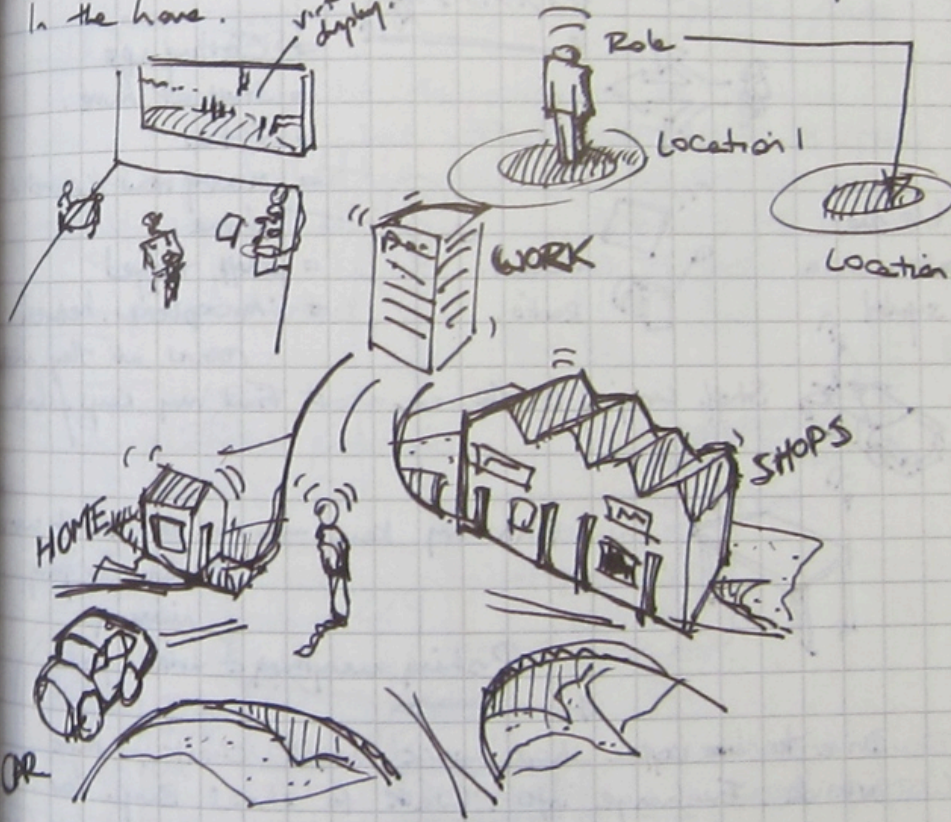 In the home.
display.
Role
Location 1
Location
WORK
SHOPS
HOME